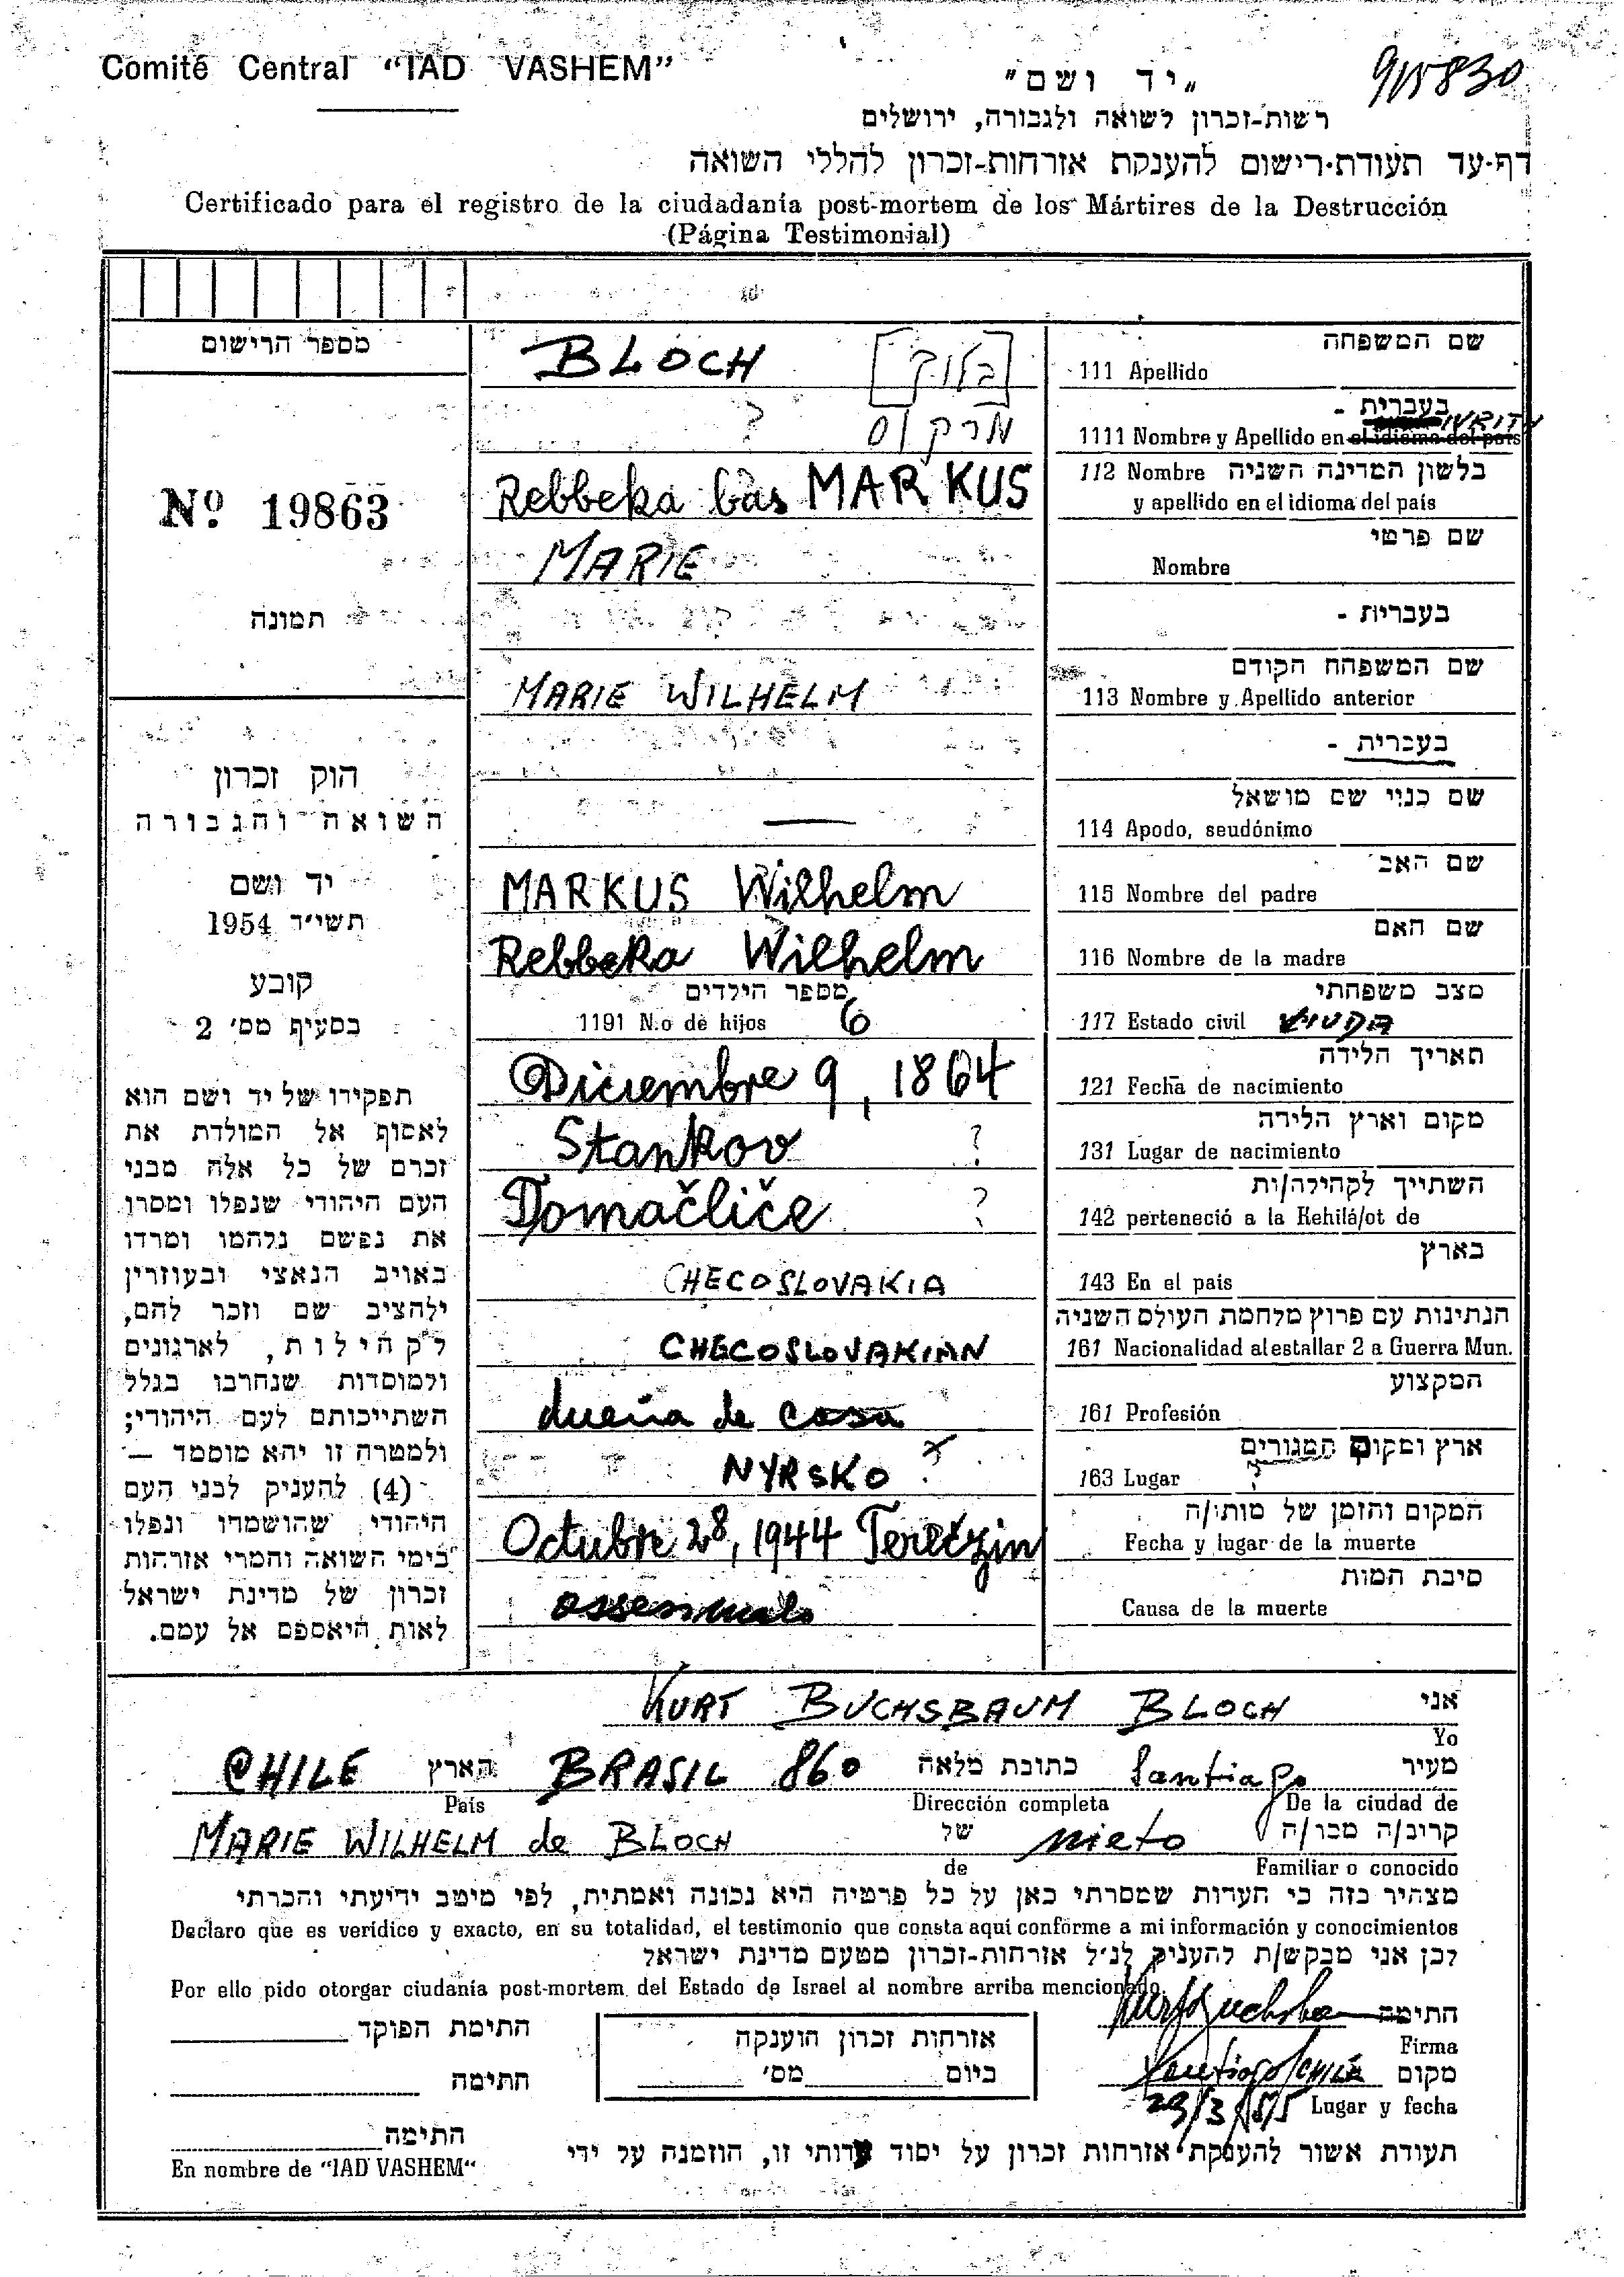 Comité Central "IAD VASHEM"
"יד ושם"
רשות-זכרון לשואה ולגבורה, ירושלים
דף-עד תעודת-רישום להענקת אזרחות-זכרון להללי השואה
Certificado para el registro de la ciudadanía post-mortem de los Mártires de la Destrucción
(Página Testimonial)
מספר הרישום
Nº 19863
תמונה
חוק זכרון
השואה והגבורה
יד ושם
תשי"ד 1954
קובע
בסעיף מס' 2
תפקידו של יד ושם הוא
לאסוף אל המולדת את
זכרם של כל אלה מבני
העם היהודי שנפלו ומסרו
את נפשם נלחמו ומרדו
באויב הנאצי ובעוזריו
ולהציב שם וזכר להם,
לקהילות, לארגונים
ולמוסדות שנחרבו בגלל
השתייכותם לעם היהודי;
ולמטרה זו יהא מוסמך —
(4) להעניק לבני העם
היהודי שהושמדו ונפלו
בימי השואה והמרי אזרחות
זכרון של מדינת ישראל
לאות היאספם אל עמם.
BLOCH [בלוך] שם המשפחה
111 Apellido
? מרקוס בעברית -
1111 Nombre y Apellido en el idioma del país
Rebbeka bas MARKUS 112 Nombre בלשון המדינה השניה
y apellido en el idioma del país
MARIE שם פרטי
Nombre
בעברית -
MARIE WILHELM שם המשפחה הקודם
113 Nombre y Apellido anterior
בעברית -
— שם כנוי שם מושאל
114 Apodo, seudónimo
MARKUS Wilhelm שם האב
115 Nombre del padre
Rebbeka Wilhelm שם האם
116 Nombre de la madre
מספר הילדים מצב משפחתי
1191 N.o de hijos 6 117 Estado civil VIUDA
Diciembre 9, 1864 תאריך הלידה
121 Fecha de nacimiento
Stankov ? מקום וארץ הלידה
131 Lugar de nacimiento
Domačliče ? השתייך לקהילה/ות
142 perteneció a la Kehilá/ot de
CHECOSLOVAKIA בארץ
143 En el país
הנתינות עם פרוץ מלחמת העולם השניה
CHECOSLOVAKIAN 161 Nacionalidad al estallar 2 a Guerra Mun.
dueña de casa המקצוע
161 Profesión
NYRSKO ? ארץ ומקום המגורים
163 Lugar
Octubre 28, 1944 Terečzin המקום והזמן של מות/ה
Fecha y lugar de la muerte
assesinato סיבת המות
Causa de la muerte
KURT BUCHSBAUM BLOCH אני
Yo
CHILE הארץ BRASIL 860 כתובת מלאה Santiago מעיר
País Dirección completa De la ciudad de
MARIE WILHELM de BLOCH של nieto קרוב/ה מכר/ה
de Familiar o conocido
מצהיר בזה כי העדות שמסרתי כאן על כל פרטיה היא נכונה ואמתית, לפי מיטב ידיעתי והכרתי
Declaro que es verídico y exacto, en su totalidad, el testimonio que consta aqui conforme a mi información y conocimientos
לכן אני מבקש/ת להעניק לנ"ל אזרחות-זכרון מטעם מדינת ישראל
Por ello pido otorgar ciudanía post-mortem del Estado de Israel al nombre arriba mencionado.
התימת הפוקד אזרחות זכרון הוענקה Kurt Buchsba התימה
Firma
התימה ביום מס' Santiago/CHILE מקום
23/3/55 Lugar y fecha
התימה
En nombre de "IAD VASHEM"
תעודת אשור להענקת אזרחות זכרון על יסוד עדותי זו, הוזמנה על ידי